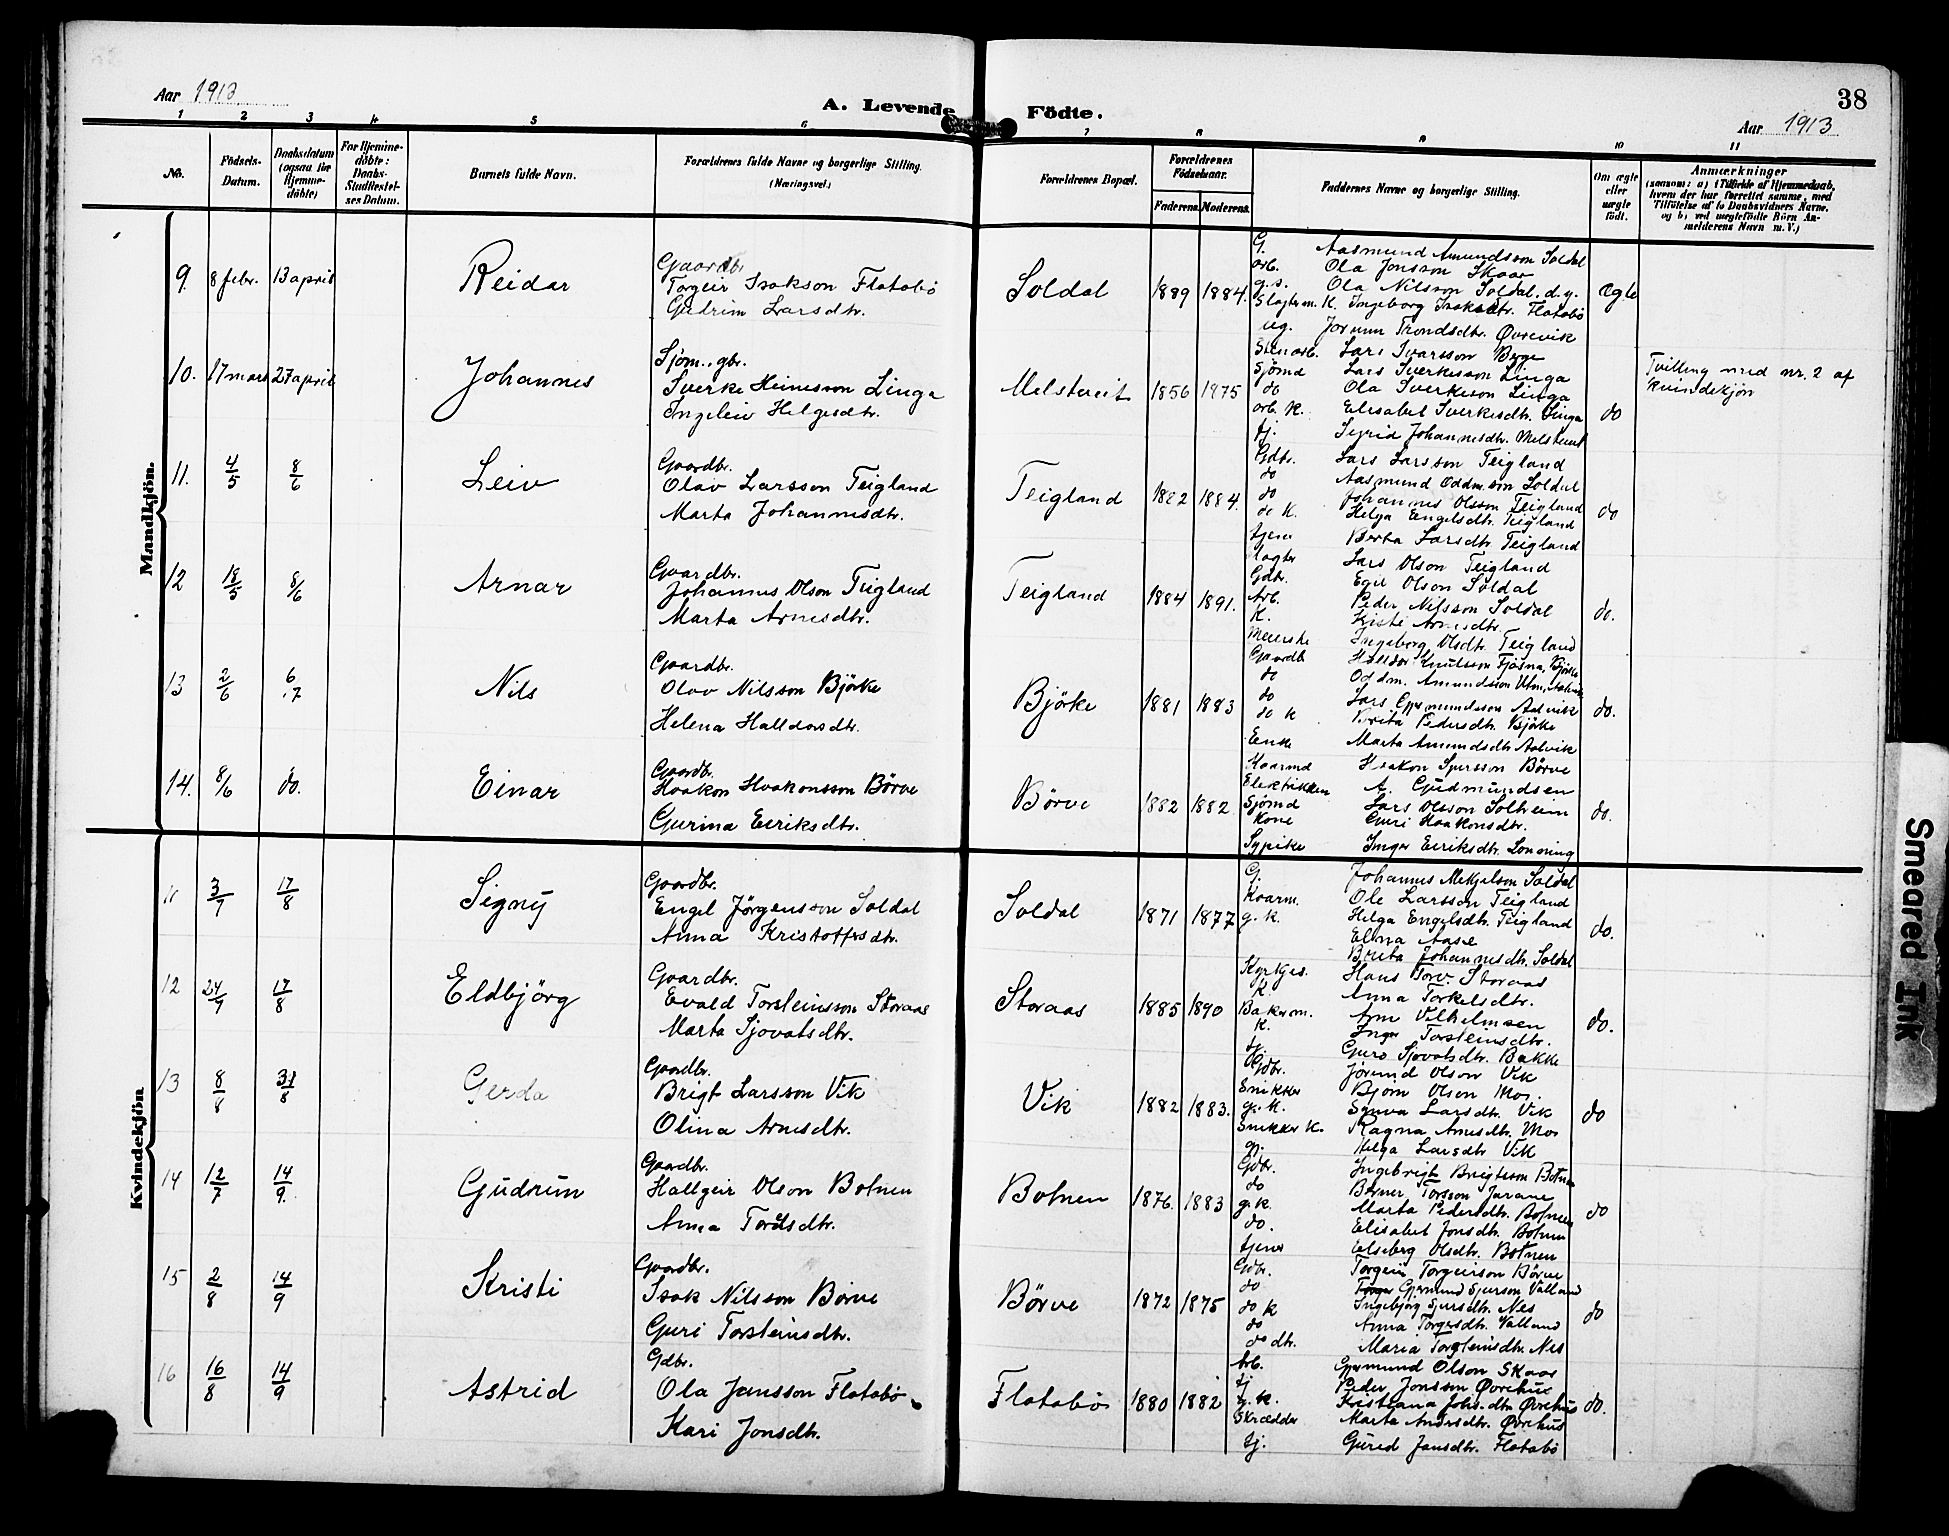 Aar 1913
A. Levende Födte.
38
Aar 1913
1 2 3 4 5 6 7 8 9 10 11
No.
Födsels-
Datum.
Daabsdatum
(ogsaa for
Hjemme-
döbte)
For Hjemme-
döbte:
Daabs-
Stadfæstel-
ses Datum.
Barnets fulde Navn.
Forældrenes fulde Navne og borgerlige Stilling.
(Næringsvei.)
Forældrenes Bopæl.
Forældrenes
Födselsaar.
Faderens. Moderens.
Faddernes Navne og borgerlige Stilling.
Om ægte
eller
uægte
født.
Anmærkninger
(saasom: a) i Tilfælde af Hjemmedaab,
hvem der har forrettet samme, med
Tilföielse af to Daabsvidners Navne.
og b) ved uægtefödte Börn An-
melderens Navn m. V.)
Mandkjön.
9. 8 febr. 13 april Reidar
Gaardbr.
Torgeir Isakson Flatabö
Gudrun Larsdtr.
Soldal 1889 1884.
G. Aasmund Amundsson Soldal
arb. Ola Jonsson Skaar
g.s. Ola Nilsson Soldal. d.y.
Slagterm. K. Ingeborg Isaksdtr. Flatabö
ug. Jorunn Trondsdtr. Øvrevik
Ægte
10. 17 mars 27 april Johannes
Sjöm., gbr.
Sverke Heinesson Linga
Ingeleiv Helgesdtr.
Melstveit 1856 1975
Stenarb. Lars Ivarsson Berge
Sjömd Lars Sverkesson Linga
do Ola Sverkeson Linga
arb. K. Elisabet Sverkesdtr. Linga
tj. Sigrid Johannesdtr. Melstveit
do
Tvilling med nr. 2 af
kvindekjön
11. 4/5 8/6 Leiv
Gaardbr.
Olav Larsson Teigland
Marta Johannesdtr.
Teigland 1882 1884.
Gdbr. Lars Larsson Teigland
do Aasmund Oddmson Soldal
do Johannes Olsson Teigland
do K. Helga Engelsdtr. Teigland
tjen Berta Larsdtr Teigland
do
12 18/5 8/6 Arnar
Gaardbr.
Johannes Olson Teigland
Marta Arnesdtr.
Teigland 1884 1891.
Slagter Lars Olson Teigland
Gdbr. Egil Olson Soldal
Arb. Peder Nilsson Soldal
K. Kristi Arnesdtr.
Meierske Ingeborg Olsdtr. Teigland
do.
13 2/6 6/7 Nils
Gaardbr.
Olav Nilsson Björke
Helena Halldorsdtr.
Björke 1881 1883
Gaardb Halldor Knutsson Fjösna, Björke
do Oddm. Amundsson Utm, Aalvik
do Lars Gjermundsson Aalvik
do k Brita Pedersdtr. Björke
Enke Marta Amundsdtr Aalvik
do.
14. 8/6 do. Einar
Gaardb.
Haakon Haakonsson Börve
Gurina Eiriksdtr.
Börve 1882 1882
Haarmd Haakon Sjursson Börve
Elektriker A. Gudmundsen
Sjömd Lars Olsson Solheim
Kone Guri Haakonsdtr.
Sypike Inger Eiriksdtr. Lonning
do.
Kvindekjön
11 3/7 17/8 Signy
Gaardbr.
Engel Jörgensson Soldal
Anna Kristoffersdtr.
Soldal 1871 1877
G. Johannes Mikjalson Soldal
Kaarm. Ole Larsson Teigland
g.k. Helga Engelsdtr. Teigland
Elina Aase
Brita Johannesdtr. Soldal
do.
12 24/7 17/8 Eldbjörg
Gaardbr.
Evald Torsteinsson Storaas
Marta Sjovatsdtr.
Storaas 1885 1890
Kyrkjes. Hans Torv. Storaas
K. Anna Torkelsdtr.
Bakerm. Arne Vilhelmsen
K. Inger Torsteinsdtr.
tj. Guro Sjovatsdtr. Bakke
do.
13 8/8 31/8 Gerda
Gaardbr.
Brigt Larsson Vik
Olina Arnesdtr.
Vik 1882 1883.
Gdbr. Jörund Olson Vik
Snikker Björn Olson Mo.
g.k. Synva Larsdtr. Vik
Snikker K. Ragna Arnesdtr. Mo
gj. Helga Larsdtr Vik
do
14 12/7 14/9. Gudrun
Gaardbr.
Hallgeir Olson Botnen
Anna Tordsdtr.
Botnen 1876. 1883
Gdbr. Ingebrigt Brigtsson Botnen
do Berner Torsson Jarane
g.k. Marta Pedersdtr. Botnen
do. Elisabet Jonsdtr. Botnen
tjener Elseberg Olsdtr. Botnen
do
15 2/8 14/9 Kristi
Gaardbr.
Isak Nilsson Börve
Guri Torsteinsdtr.
Börve 1872 1875
Gdbr. Torgeir Torgeirson Börve
do Gjermund Sjurson Valland
do k Ingebjörg Sjursdtr. Nes
do Anna Torgersdtr. Valland
do dtr. Maria Torsteinsdtr. Nes
do
16 16/8 14/9 Astrid
Gdbr.
Ola Jansson Flatabö
Kari Jonsdtr.
Flatabö 1880 1882
Arb. Gjermund Olson Skaar
tj Peder Jonsson Øvrehus
g.k. Kristiana Johs.dtr. Øvrehus
Skrædder Marta Andersdtr. Øvrehus
tj. Gured Jansdtr. Flatabö
do.
Smeared Ink